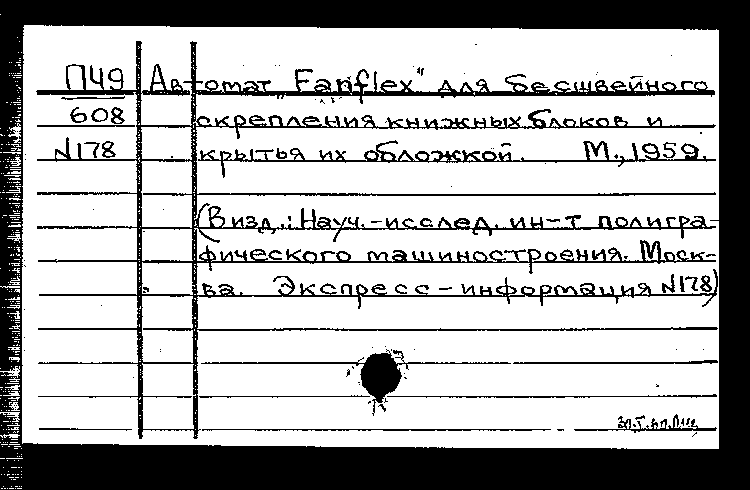 П49 Автомат "Fanflex" для бесшвейного
608 скрепления книжных блоков и
N178 крытья их обложкой. М., 1959.
(В изд.: Науч.-исслед. ин-т полигра-
фического машиностроения. Моск-
ва. Экспресс-информация N178)